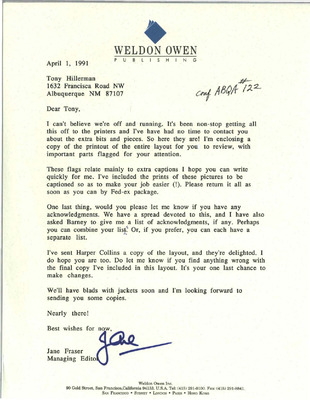 WELDON OWEN
PUBLISHING
April 1, 1991
Tony Hillerman
1632 Francisca Road NW
Albuquerque NM 87107
conf ABQA #122
Dear Tony,
I can't believe we're off and running. It's been non-stop getting all
this off to the printers and I've have had no time to contact you
about the extra bits and pieces. So here they are! I'm enclosing a
copy of the printout of the entire layout for you to review, with
important parts flagged for your attention.
These flags relate mainly to extra captions I hope you can write
quickly for me. I've included the prints of these pictures to be
captioned so as to make your job easier (!). Please return it all as
soon as you can by Fed-ex package.
One last thing, would you please let me know if you have any
acknowledgments. We have a spread devoted to this, and I have also
asked Barney to give me a list of acknowledgments, if any. Perhaps
you can combine your list? Or, if you prefer, you can each have a
separate list.
I've sent Harper Collins a copy of the layout, and they're delighted. I
do hope you are too. Do let me know if you find anything wrong with
the final copy I've included in this layout. It's your one last chance to
make changes.
We'll have blads with jackets soon and I'm looking forward to
sending you some copies.
Nearly there!
Best wishes for now,
Jane
Jane Fraser
Managing Editor
Weldon Owen Inc.
90 Gold Street, San Francisco, California 94133, U.S.A.
San Francisco • Sydney • London • Paris • Hong Kong